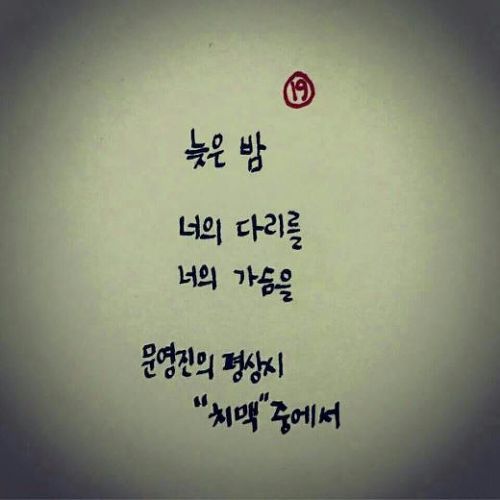 19
늦은 밤
너의 다리를
너의 가슴을
문영진의 평상시
"치맥"중에서